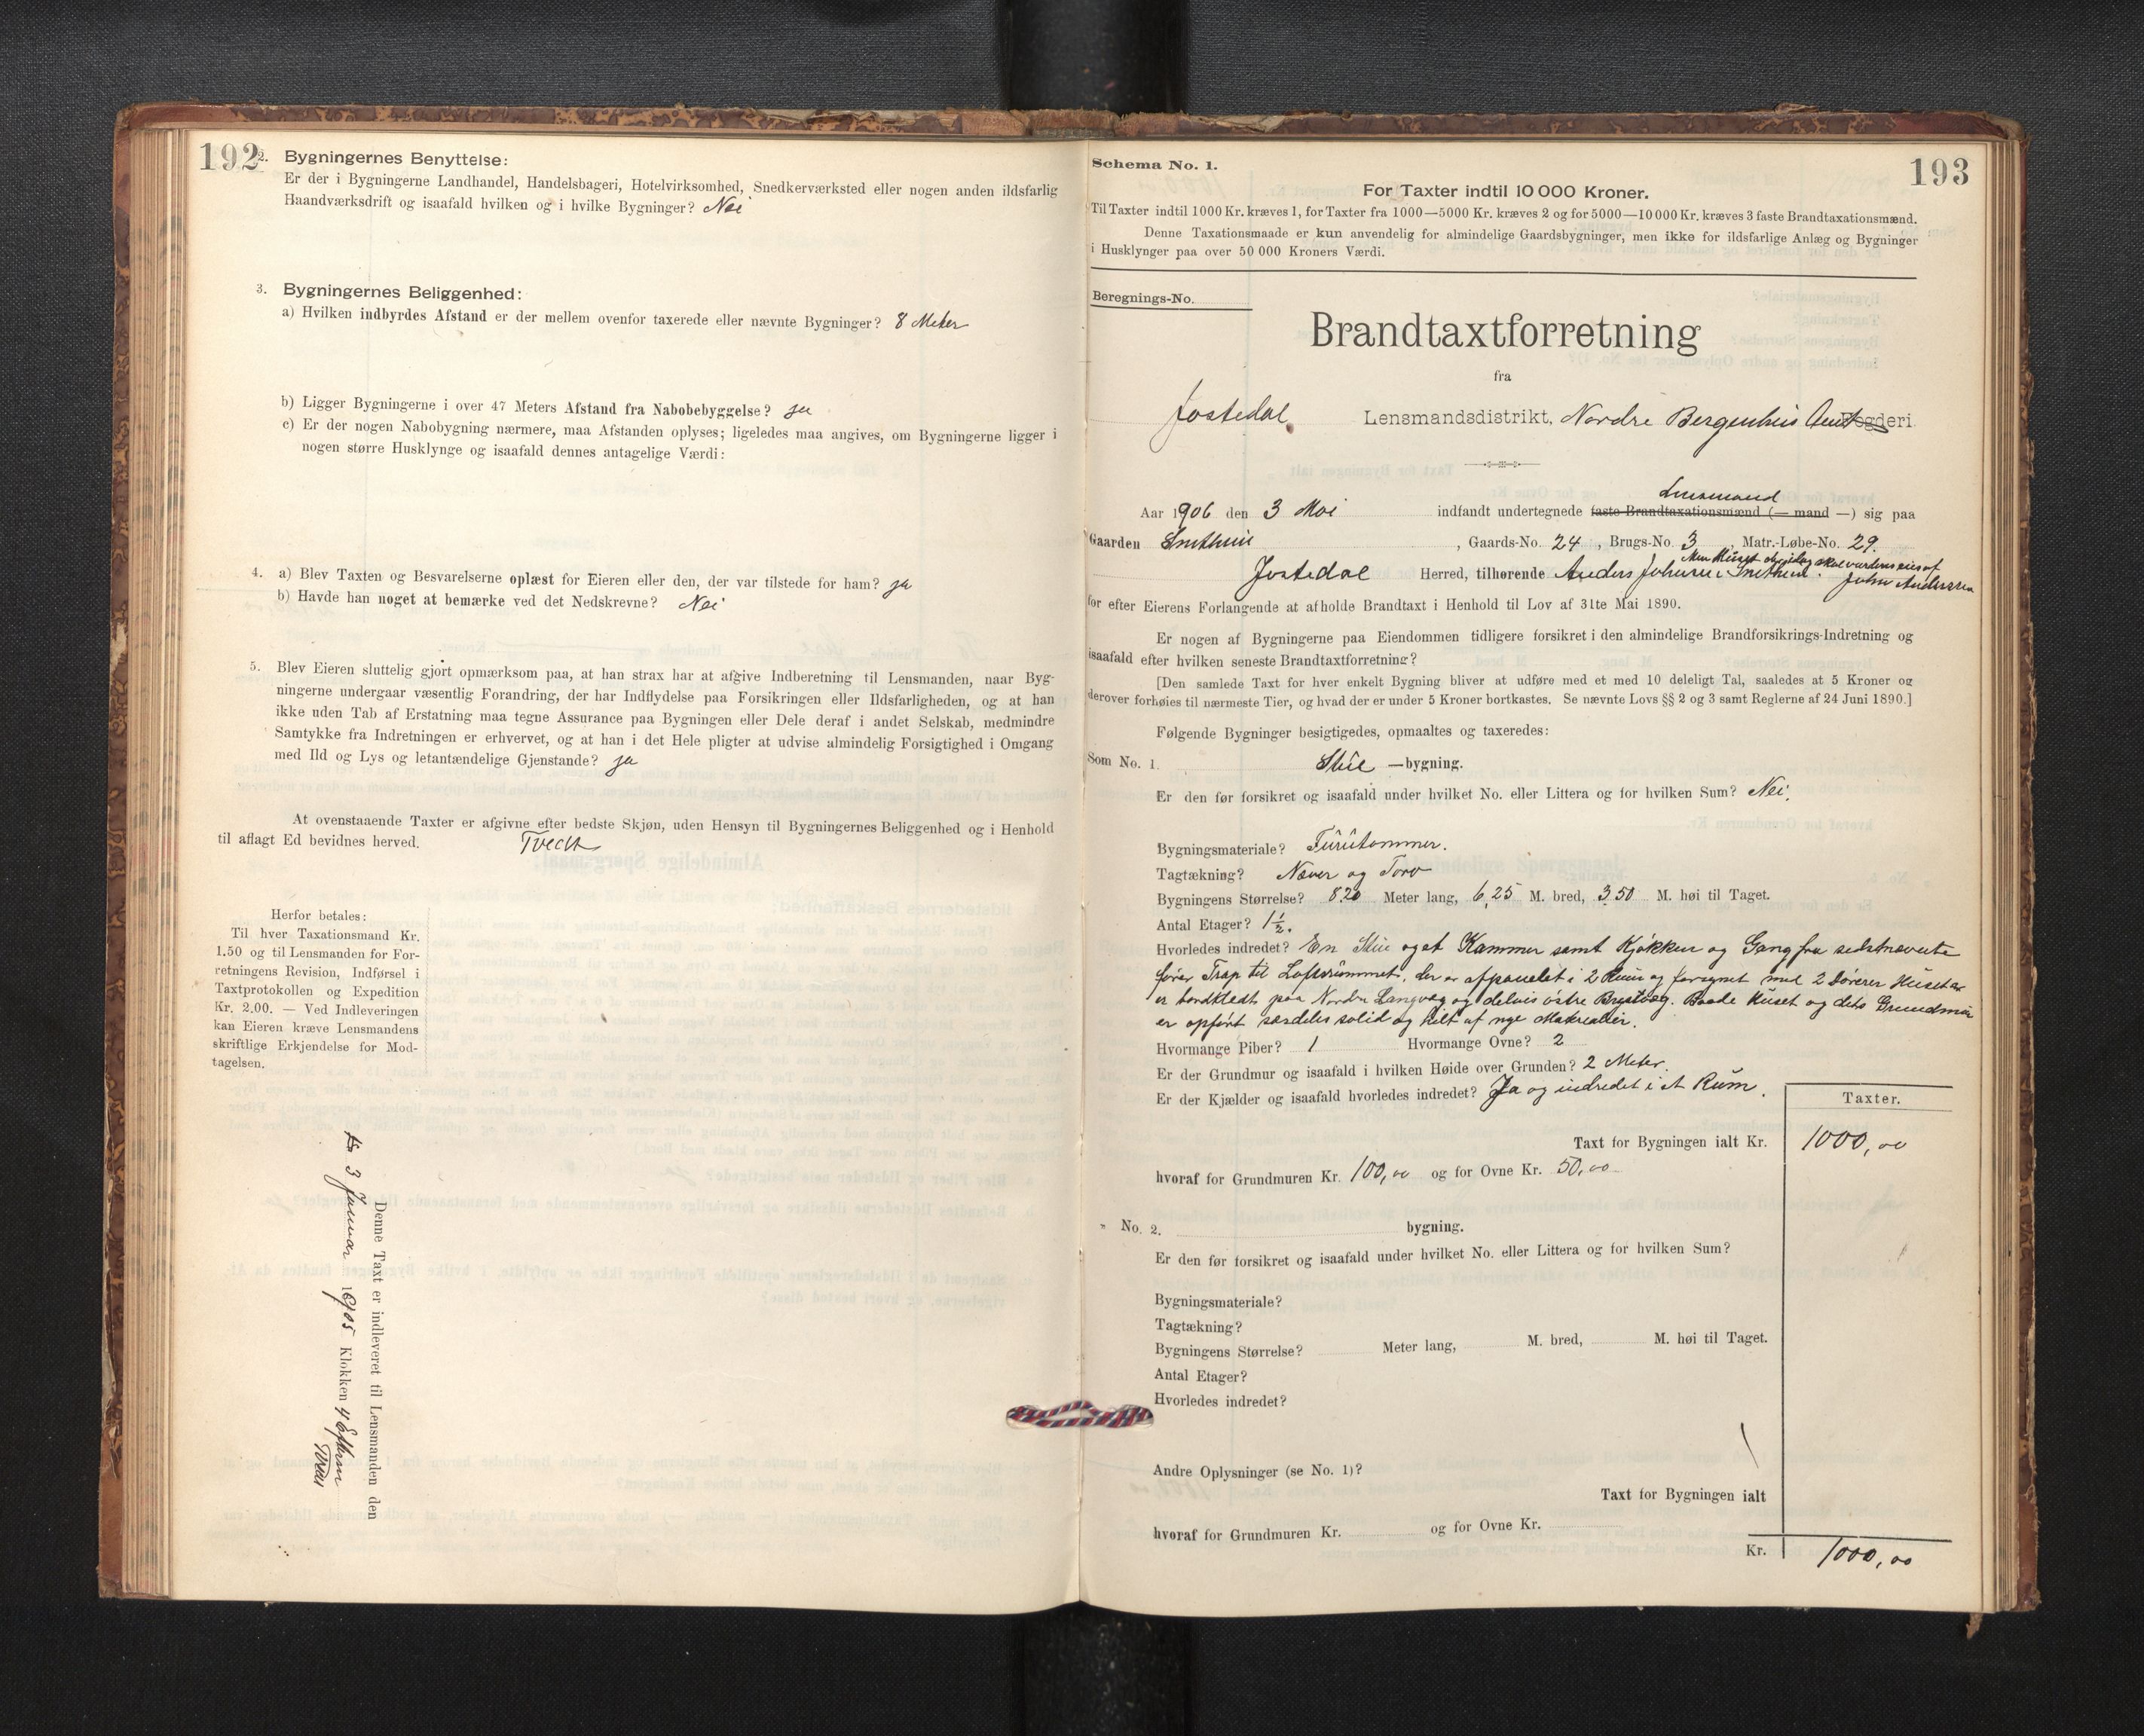 192
2. Bygningernes Benyttelse:
Er der i Bygningerne Landhandel, Handelsbageri, Hotelvirksomhed, Snedkerværksted eller nogen anden ildsfarlig
Haandværksdrift og isaafald hvilken og i hvilke Bygninger? Nei
3. Bygningernes Beliggenhed:
a) Hvilken indbyrdes Afstand er der mellem ovenfor taxerede eller nævnte Bygninger? 8 Meter
b) Ligger Bygningerne i over 47 Meters Afstand fra Nabobebyggelse? Ja
c) Er der nogen Nabobygning nærmere, maa Afstanden oplyses; ligeledes maa angives, om Bygningerne ligger i
nogen større Husklynge og isaafald dennes antagelige Værdi:
4. a) Blev Taxten og Besvarelserne oplæst for Eieren eller den, der var tilstede for ham? ja
b) Havde han noget at bemærke ved det Nedskrevne? Nei
5. Blev Eieren sluttelig gjort opmærksom paa, at han strax har at afgive Indberetning til Lensmanden, naar Byg-
ningerne undergaar væsentlig Forandring, der har Indflydelse paa Forsikringen eller Ildsfarligheden, og at han
ikke uden Tab af Erstatning maa tegne Assurance paa Bygningen eller Dele deraf i andet Selskab, medmindre
Samtykke fra Indretningen er erhvervet, og at han i det Hele pligter at udvise almindelig Forsigtighed i Omgang
med Ild og Lys og letantændelige Gjenstande? ja
At ovenstaaende Taxter er afgivne efter bedste Skjøn, uden Hensyn til Bygningernes Beliggenhed og i Henhold
til aflagt Ed bevidnes herved. Tvedt
Herfor betales:
Til hver Taxationsmand Kr.
1.50 og til Lensmanden for For-
retningens Revision, Indførsel i
Taxtprotokollen og Expedition
Kr. 2.00. — Ved Indleveringen
kan Eieren kræve Lensmandens
skriftlige Erkjendelse for Mod-
tagelsen.
Denne Taxt er indleveret til Lensmanden den
3 Januar 1905 Klokken 4 Efterm
193
Schema No. 1.
For Taxter indtil 10 000 Kroner.
Til Taxter indtil 1000 Kr. kræves 1, for Taxter fra 1000—5000 Kr. kræves 2 og for 5000—10 000 Kr. kræves 3 faste Brandtaxationsmænd.
Denne Taxationsmaade er kun anvendelig for almindelige Gaardsbygninger, men ikke for ildsfarlige Anlæg og Bygninger
i Husklynger paa over 50 000 Kroners Værdi.
Beregnings-No.
Brandtaxtforretning
fra
Jostedal Lensmandsdistrikt, Nordre Bergenhus Amt Fogderi
Lensmand
Aar 1906 den 3 Mai indfandt undertegnede faste Brandtaxationsmænd (— mand —) sig paa
Gaarden , Gaards-No. 24, Brugs-No. 3, Matr.-Løbe-No. 29.
Men Huset
Jostedal Herred, tilhørende Anders Johnsen John Anderssen
for efter Eierens Forlangende at afholde Brandtaxt i Henhold til Lov af 31te Mai 1890.
Er nogen af Bygningerne paa Eiendommen tidligere forsikret i den almindelige Brandforsikrings-Indretning og
isaafald efter hvilken seneste Brandtaxtforretning?
[Den samlede Taxt for hver enkelt Bygning bliver at udføre med et med 10 deleligt Tal, saaledes at 5 Kroner og
derover forhøies til nærmeste Tier, og hvad der er under 5 Kroner bortkastes. Se nævnte Lovs §§ 2 og 3 samt Reglerne af 24 Juni 1890.]
Følgende Bygninger besigtigedes, opmaaltes og taxeredes:
Som No. 1. Stue —bygning.
Er den før forsikret og isaafald under hvilket No. eller Littera og for hvilken Sum? Nei.
Bygningsmateriale? Furutømmer.
Tagtækning? Næver og Torv
Bygningens Størrelse? 8.20 Meter lang, 6,25 M. bred, 3.50 M. høi til Taget.
Antal Etager? 1½.
Hvorledes indredet? En Stue og et Kammer samt Kjøkken og Gang fra sidstnævnte
fører Trap til Loftsrummet, der er afpanelet i 2 Rum og forsynet med 2 Dører. Huset
er bordklædt paa Nordre Langvæg og delvis østre Brystvæg. Baade Huset og dets Grundmur
er opført særdeles solid og helt af nye Materialier.
Hvormange Piber? 1 Hvormange Ovne? 2
Er der Grundmur og isaafald i hvilken Høide over Grunden? 2 Meter.
Er der Kjælder og isaafald hvorledes indredet? Ja og indredet i et Rum.
Taxter.
Taxt for Bygningen ialt Kr. 1000,00
hvoraf for Grundmuren Kr. 100,00 og for Ovne Kr. 50,00
" No. 2. bygning.
Er den før forsikret og isaafald under hvilket No. eller Littera og for hvilken Sum?
Bygningsmateriale?
Tagtækning?
Bygningens Størrelse? Meter lang, M. bred, M. høi til Taget.
Antal Etager?
Hvorledes indredet?
Andre Oplysninger (se No. 1)?
Taxt for Bygningen ialt
hvoraf for Grundmuren Kr. og for Ovne Kr.
Kr. 1000,00